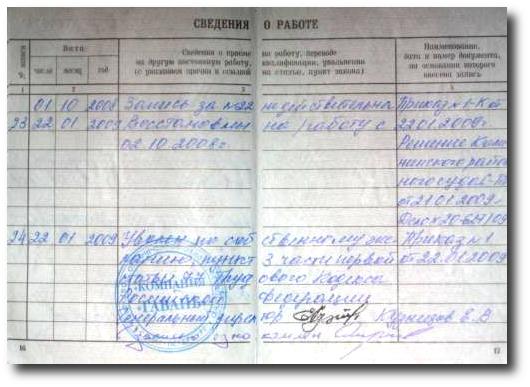 СВЕДЕНИЯ О РАБОТЕ
№ записи
Дата
число месяц год
Сведения о приеме на работу, переводе
на другую постоянную работу, квалификации, увольнении
(с указанием причин и ссылкой на статью, пункт закона)
Наименование,
дата и номер документа,
на основании которого
внесена запись
1 2 3 4
01 10 2008 Запись за №22 недействительна Приказ №1-К от
23 22 01 2009 Восстановлен на работу с 22.01.2009г.
02.10.2008г. Решение
районного суда
от 21.01.2009г.
24 22 01 2009 Уволен по собственному же- Приказ №1
ланию, пункт 3 части первой от 22.01.2009
статьи 77 Трудового Кодекса
Российской Федерации
Генеральный директор Кузнецов Е.В
16 17